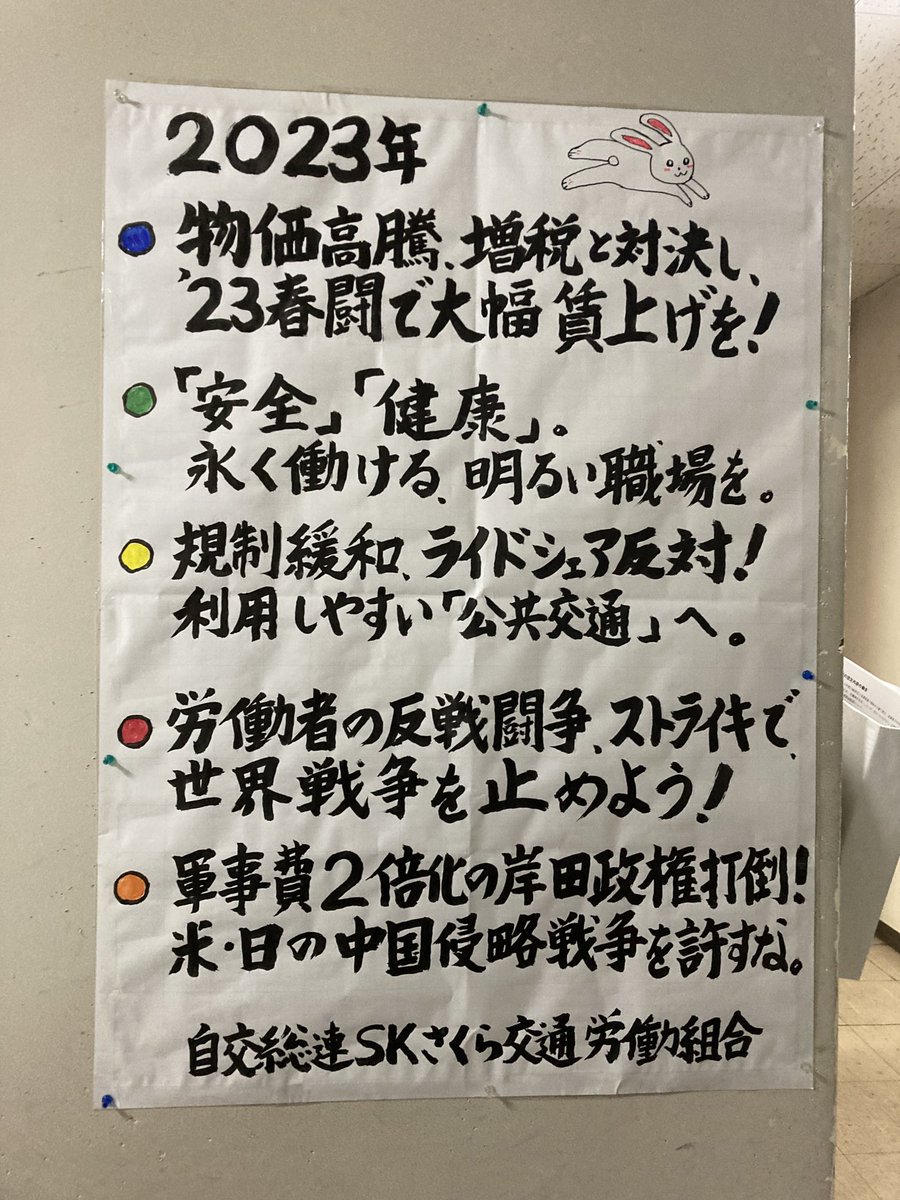 2023年
物価高騰、増税と対決し、
'23春闘で大幅賃上げを!
「安全」「健康」。
永く働ける、明るい職場を。
規制緩和、ライドシェア反対!
利用しやすい「公共交通」へ。
労働者の反戦闘争、ストライキで、
世界戦争を止めよう!
軍事費2倍化の岸田政権打倒!
米・日の中国侵略戦争を許すな。
自交総連SKさくら交通労働組合